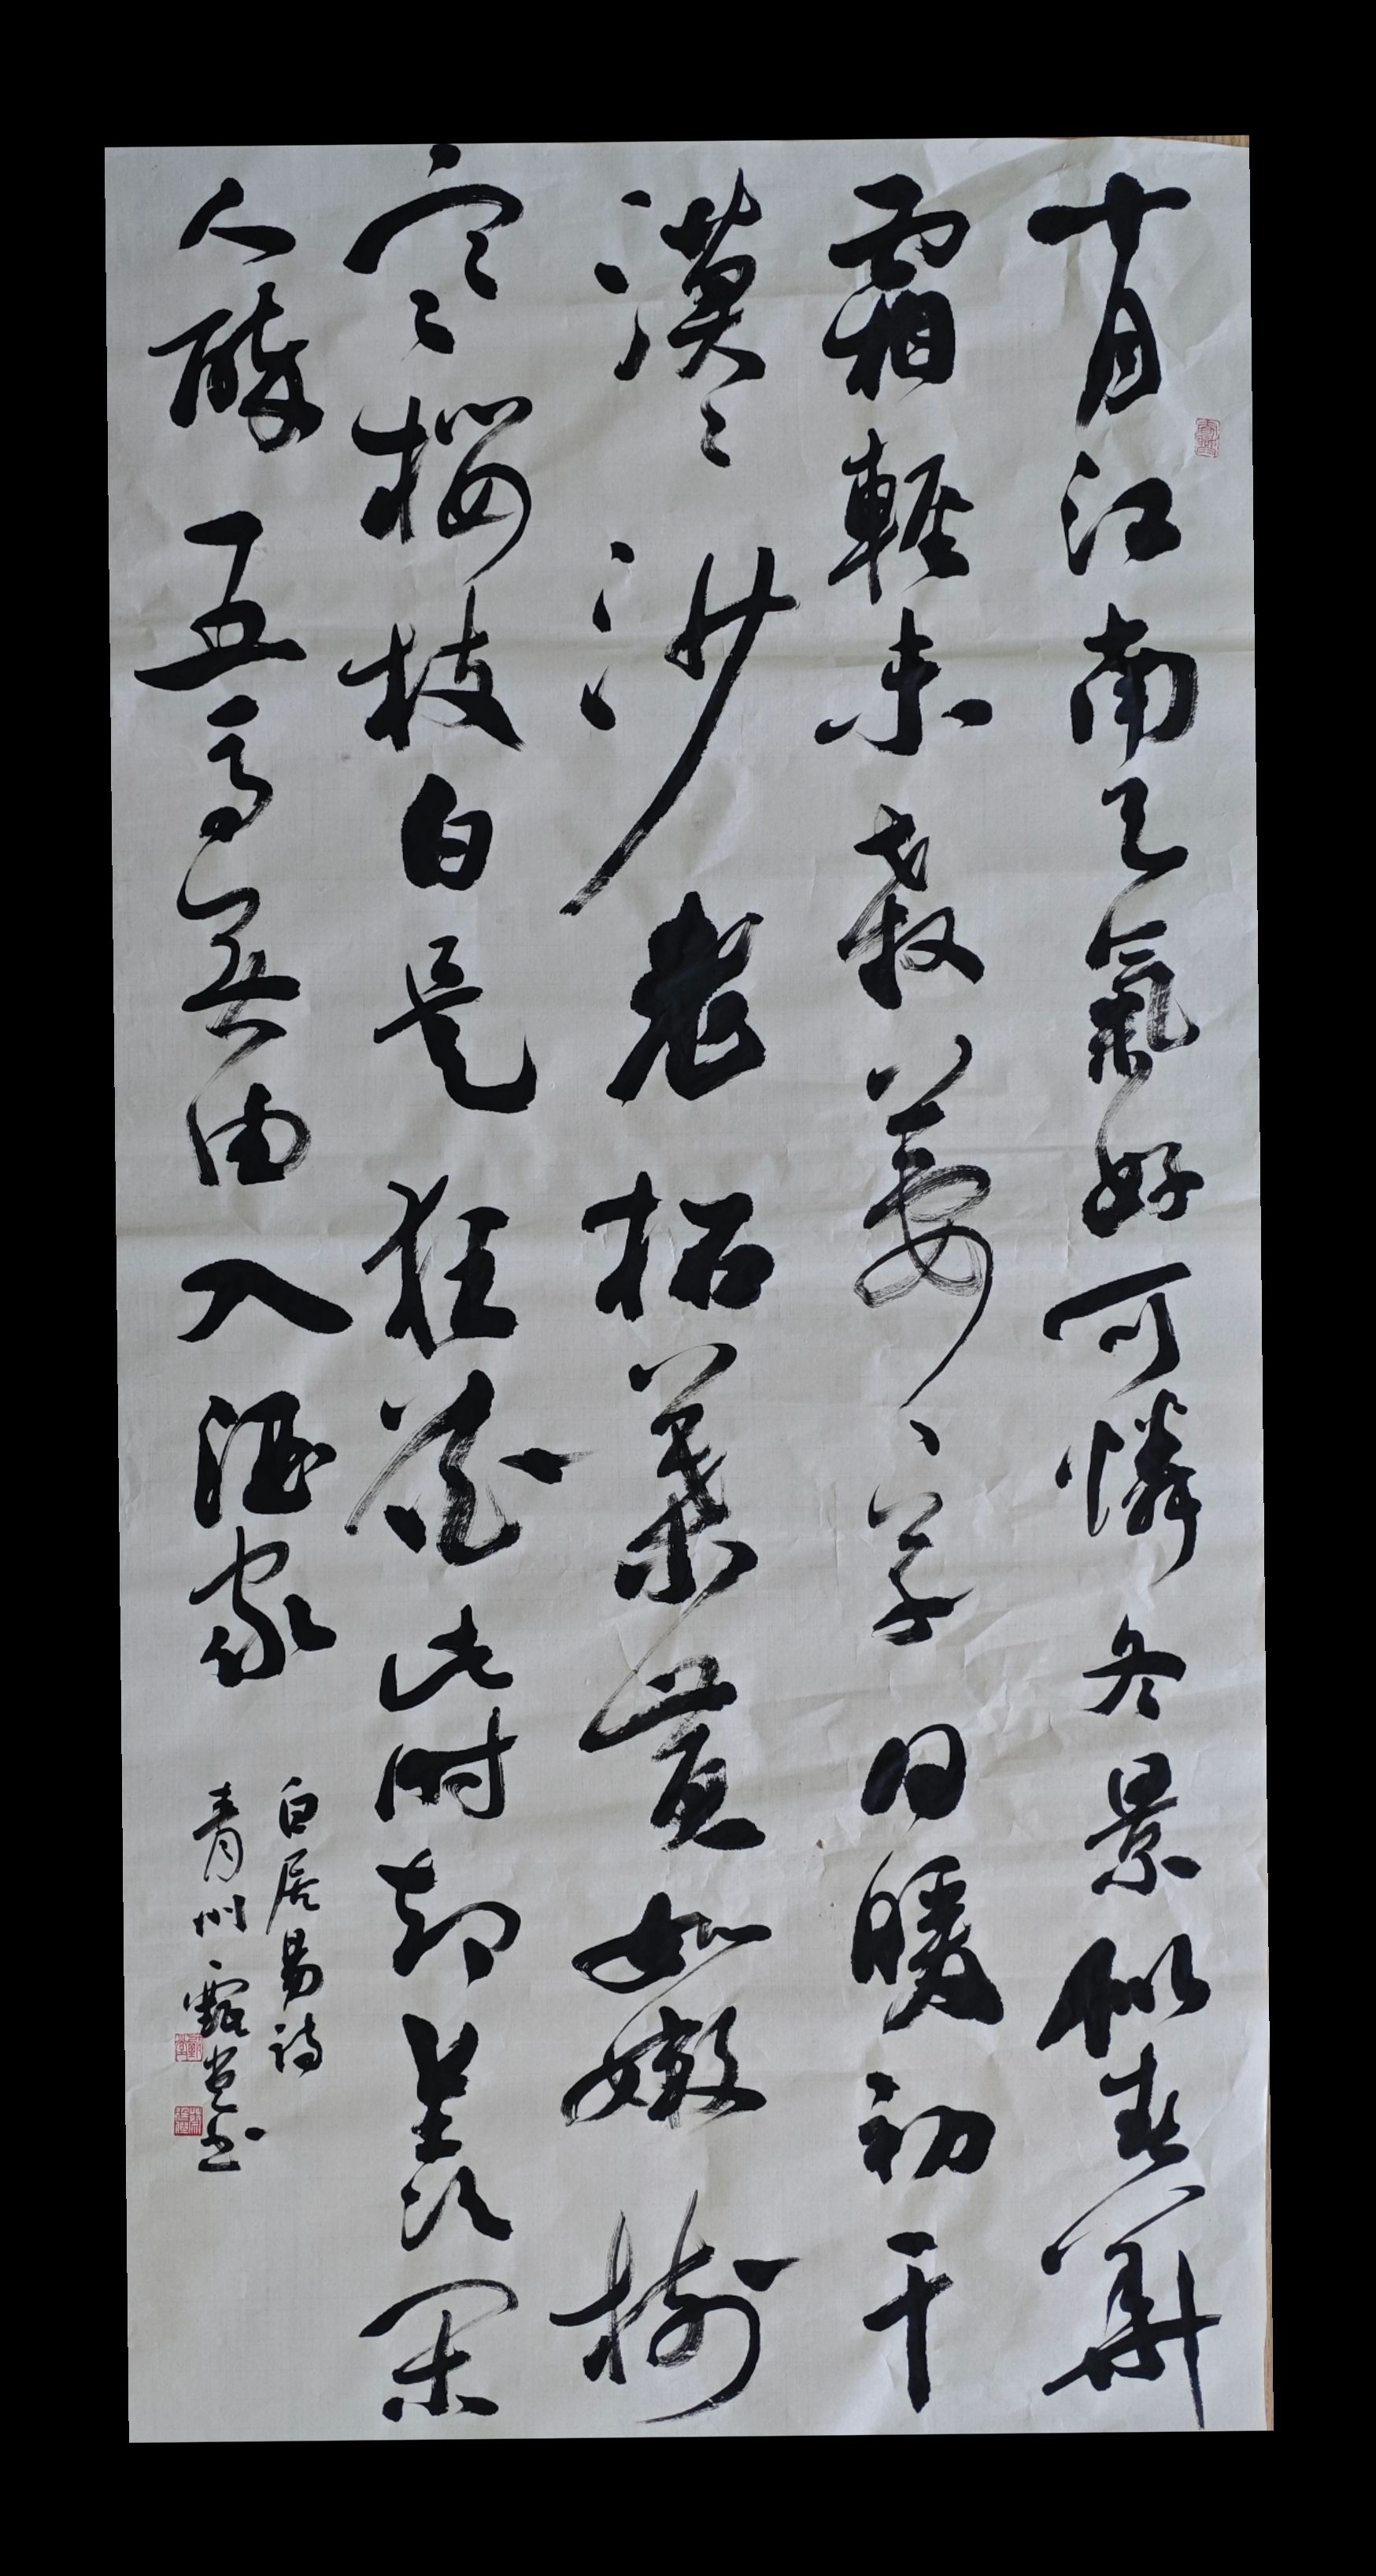 十月江南天氣好可憐冬景似春華
霜輕未殺萋々草日暖初干
漠々沙老柘葉黄如嫩樹
寒櫻枝白是狂花此時却羡闲
人醉五馬無由入酒家
白居易詩
青州书